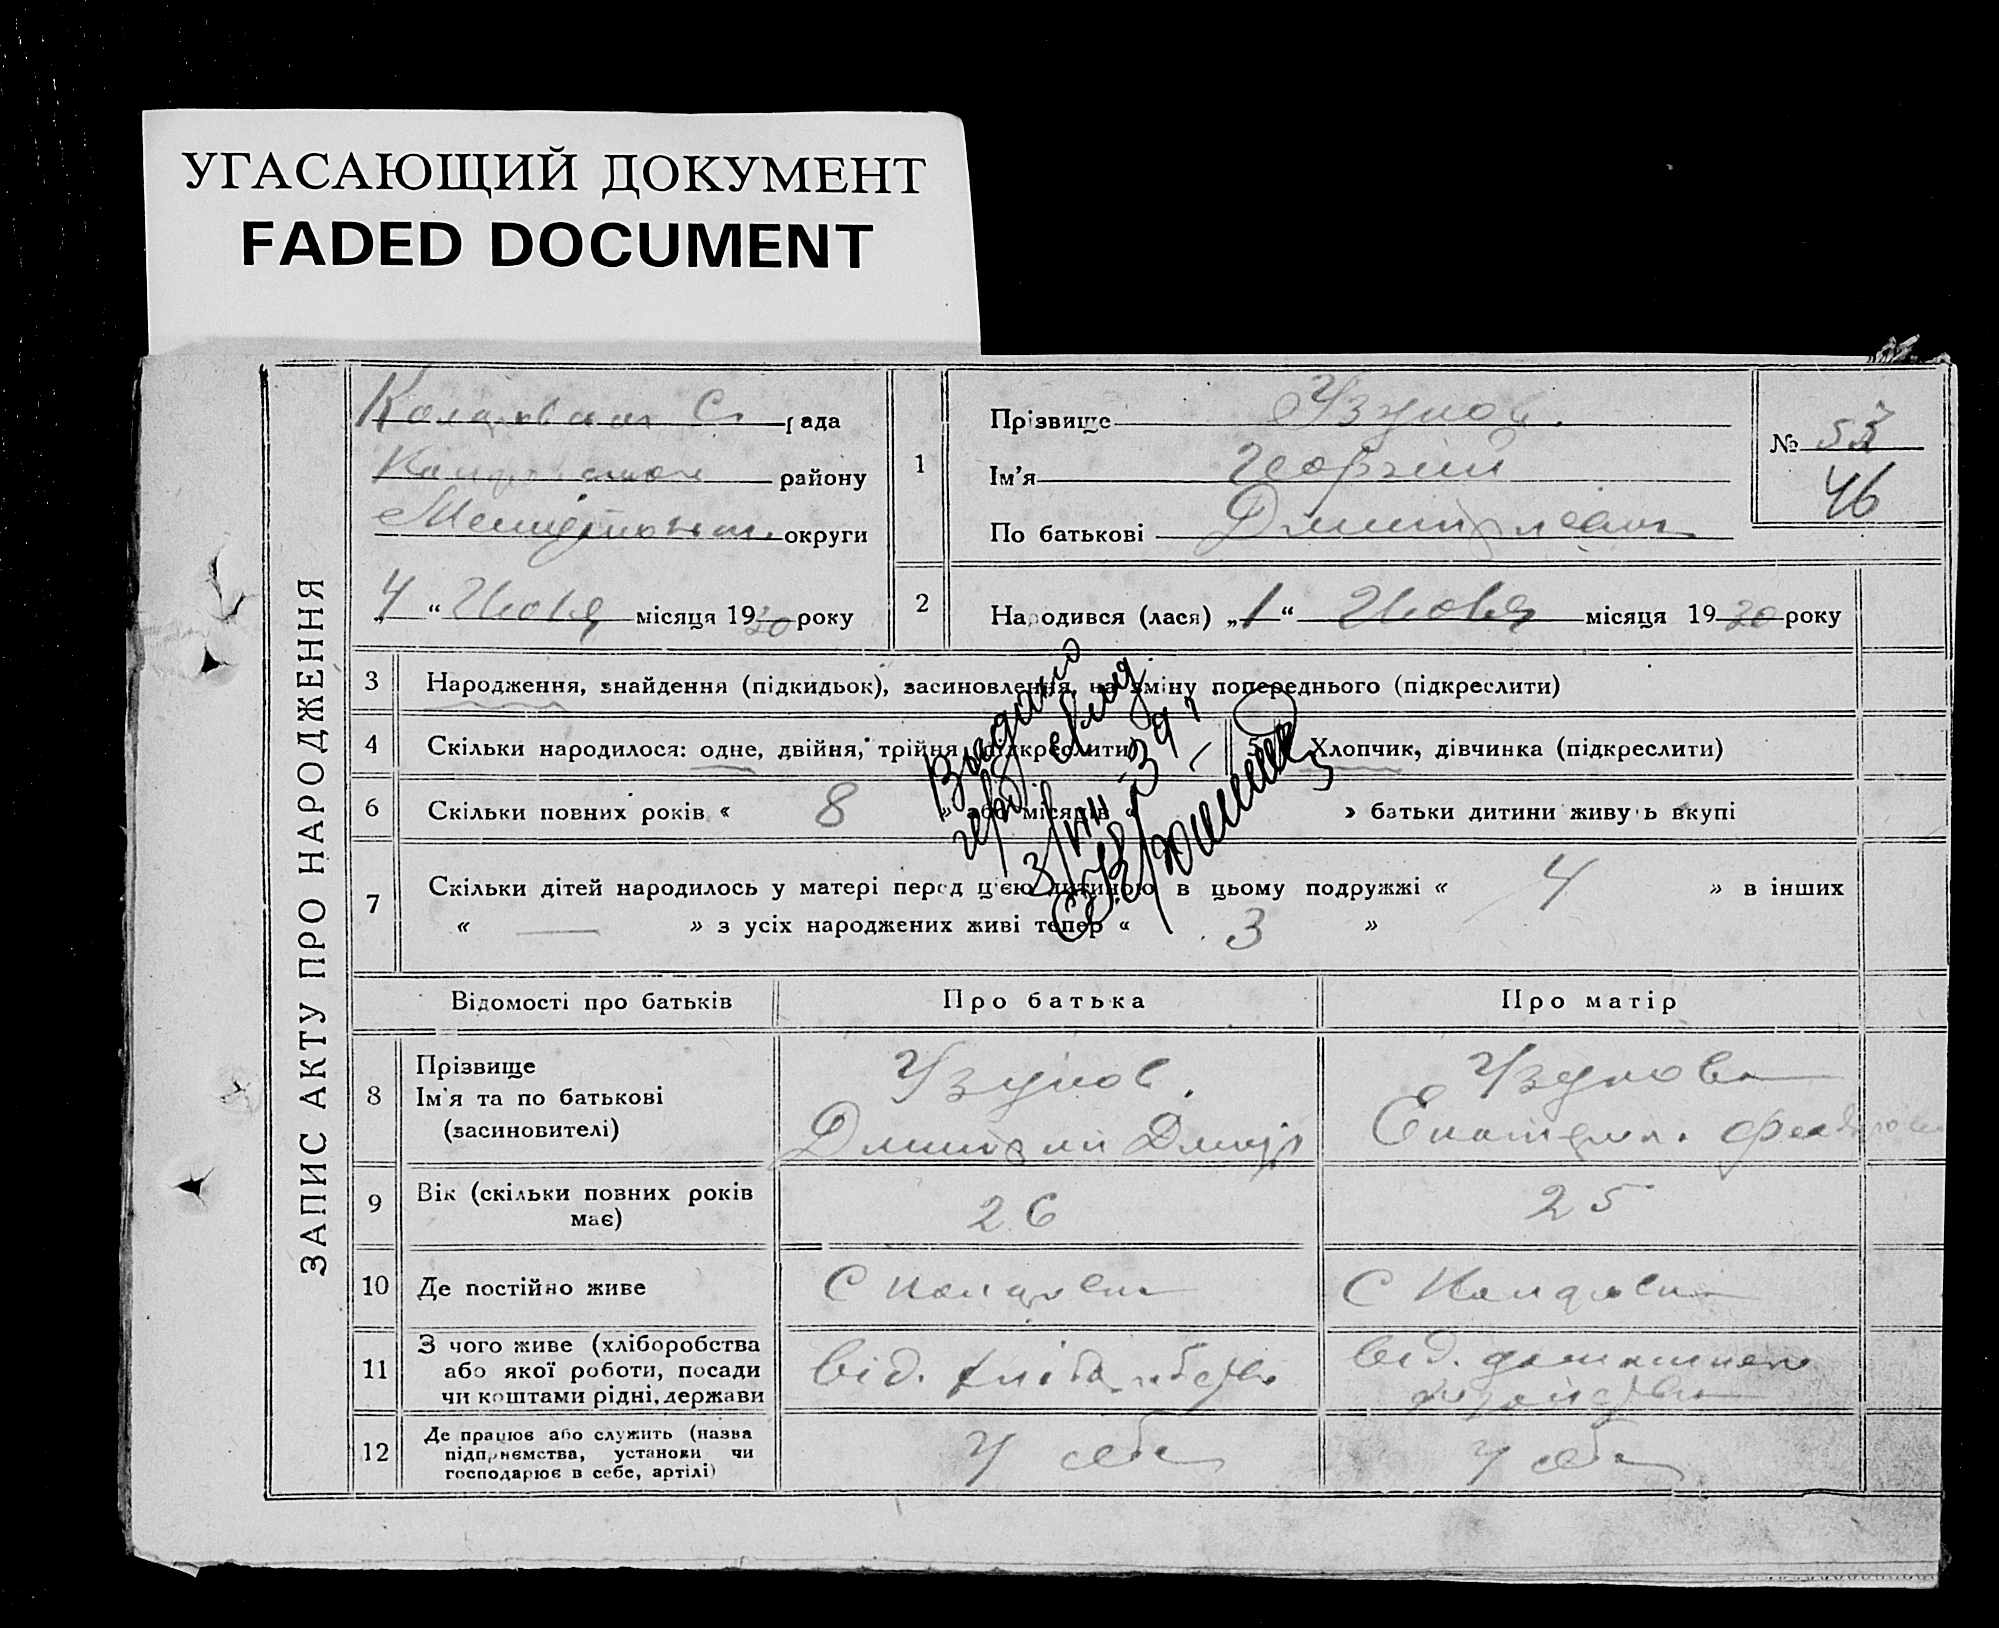 УГАСАЮЩИЙ ДОКУМЕНТ
FADED DOCUMENT
ЗАПИС АКТУ ПРО НАРОДЖЕННЯ
С. рада
району
округи
„4“ Июня місяця 1930 року
1
Прізвище Узунов.
Ім'я Георгий
По батькові
№ 53
46
2
Народився (лася) „1“ Июня місяця 1930 року
3
Народження, знайдення (підкидьок), засиновлення, на зміну попереднього (підкреслити)
4
Скільки народилося: одне, двійня, трійня (підкреслити)
5
Хлопчик, дівчинка (підкреслити)
6
Скільки повних років « 8 » або місяців « » батьки дитини живуть вкупі
7
Скільки дітей народилось у матері перед цією дитиною в цьому подружжі « 4 » в інших
« — » з усіх народжених живі тепер « 3 »
Відомості про батьків
Про батька
Про матір
8
Прізвище
Ім'я та по батькові
(засиновителі)
Узунов.
Дмитрий Дмитр
Узунова
Екатерин. Федоровн
9
Вік (скільки повних років має)
26
25
10
Де постійно живе
С
С
11
З чого живе (хліборобства
або якої роботи, посади
чи коштами рідні, держави
від.
від.
12
Де працює або служить (назва
підприємства, установи чи
господарює в себе, артілі)
У себе
У себе